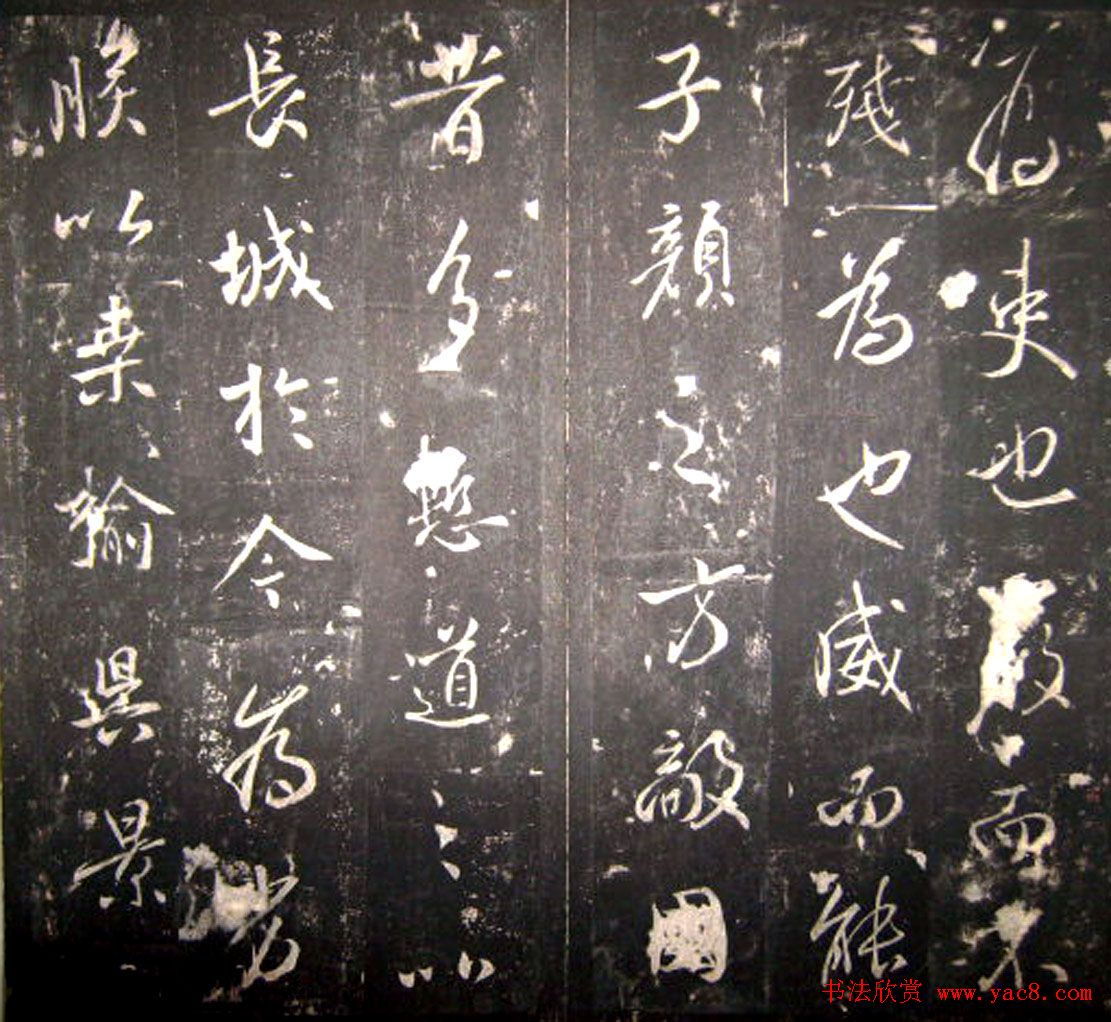 為吏也嚴而不
殘為也威而能
子顏之方敵國
昔多慙道之以
長城於今為劣
朕以桑榆異景
书法欣赏 www.yac8.com